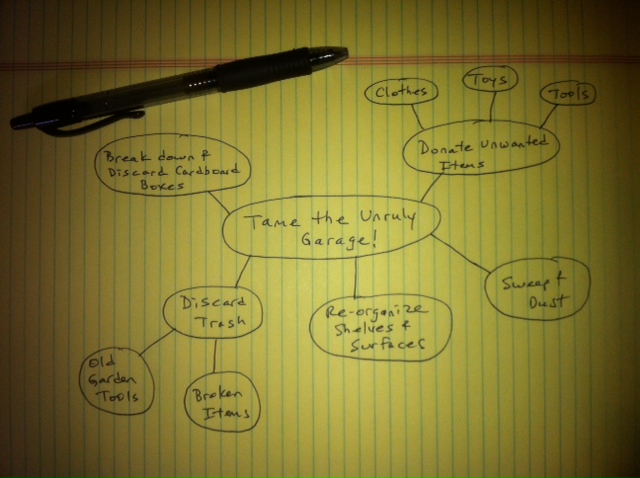 Clothes
Toys
Tools
Donate Unwanted
Items
Break down &
Discard Cardboard
Boxes
Tame the Unruly
Garage!
Sweep &
Dust
Discard
Trash
Re-organize
Shelves &
Surfaces
Old
Garden
Tools
Broken
Items